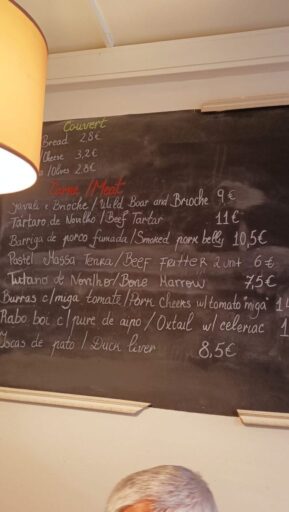 Couvert
Bread 2,8€
/Cheese 3,2€
/Olives 2,8€
Carne / Meat
Javali e Brioche / Wild Boar and Brioche 9€
Tártaro de Novilho / Beef Tartar 11€
Barriga de porco fumada / Smoked pork belly 10,5€
Pastel Massa Tenra / Beef Fritter 2 unt 6€
Tutano de Novilho / Bone Marrow 7,5€
Burras c/ miga tomate / Pork Cheeks w/ tomato "miga" 1
Rabo boi c/ pure de aipo / Oxtail w/ celeriac 1
Iscas de pato / Duck liver 8,5€